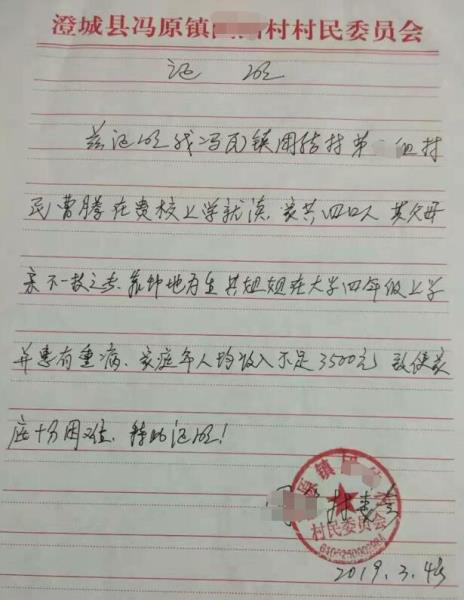 澄城县冯原镇村村民委员会
证 明
兹证明我冯原镇周结村第 组村
民曹腾在贵校上学就读.家共四口人 其父母
亲不一技之长.靠种地为生 其姐姐在大学四年级上学
并患有重病.家庭年人均收入不足3500元 致使家
庭十分困难.特此证明!
村委会
村民委员会
2019.3.4号